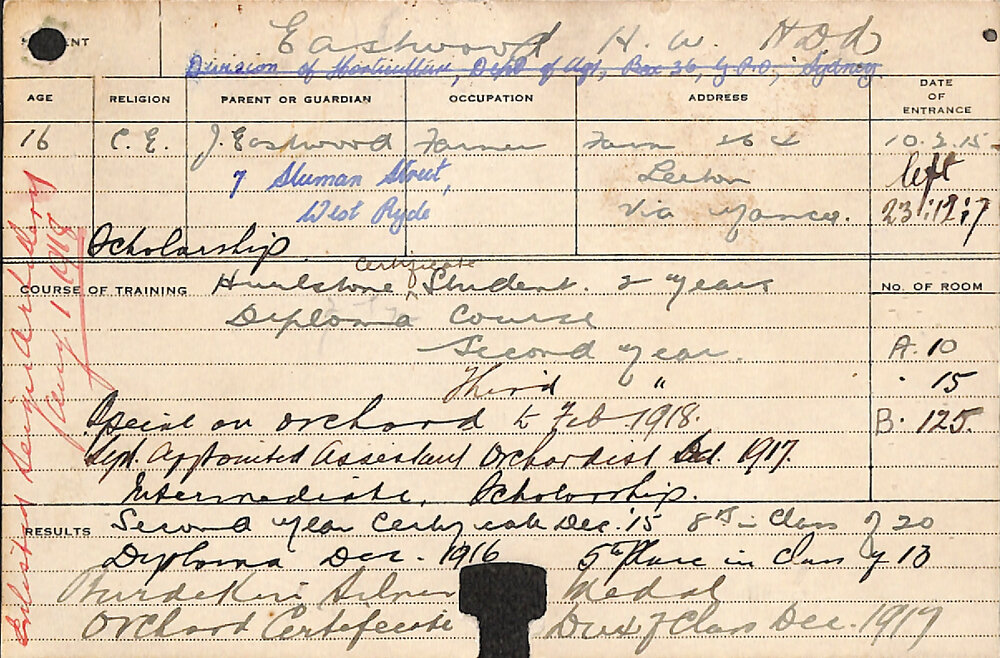 Eastwood H. W. HDD
Division of Horticulture, Dept of Agr., Box 36, G.P.O., Sydney
AGE RELIGION PARENT OR GUARDIAN OCCUPATION ADDRESS DATE OF ENTRANCE
16 C.E. J. Eastwood Farmer Farm 264 10.2.15
7 Sluman Street, Leeton left
West Ryde Via Yanco. 23.12.17
Scholarship
Certificate
COURSE OF TRAINING Hurlstone Student. 2 Years No. OF ROOM
Diploma Course
Second year. A. 10
Third " 15
Special on Orchard to Feb. 1918. B. 125.
Appointed Assistant Orchardist 1917.
Intermediate, Scholarship.
RESULTS Second Year Certificate Dec. '15 8th in Class of 20
Diploma Dec. 1916 5th Place in Class of 13
Burdekin Silver Medal
Orchard Certificate Dux of Class Dec. 1917
Enlisted Artillery
1918